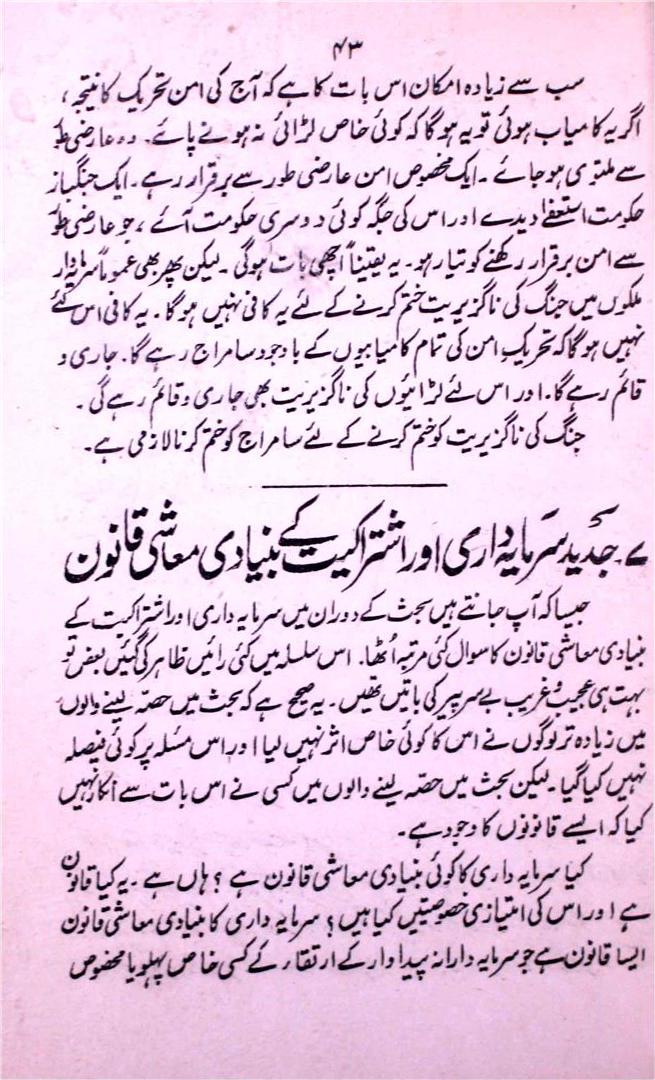 ۴۳
سب سے زیادہ امکان اس بات کا ہے کہ آج کی امن تحریک کا نتیجہ،
اگر یہ کامیاب ہوئی تو یہ ہوگا کہ کوئی خاص لڑائی نہ ہونے پائے۔ وہ عارضی طور
سے ملتوی ہو جائے۔ ایک مخصوص امن عارضی طور سے برقرار رہے۔ ایک جنگباز
حکومت استعفےٰ دیدے اور اس کی جگہ کوئی دوسری حکومت آئے، جو عارضی طور
سے امن برقرار رکھنے کو تیار ہو۔ یہ یقیناً اچھی بات ہوگی۔ لیکن پھر بھی عموماً سرمایہ دار
ملکوں میں جنگ کی ناگزیریت ختم کرنے کے لئے یہ کافی نہیں ہوگا۔ یہ کافی اس لئے
نہیں ہوگا کہ تحریکِ امن کی تمام کامیابیوں کے باوجود سامراج رہے گا۔ جاری و
قائم رہے گا۔ اور اس لئے لڑائیوں کی ناگزیریت بھی جاری و قائم رہے گی۔
جنگ کی ناگزیریت کو ختم کرنے کے لئے سامراج کو ختم کرنا لازمی ہے۔
۷۔ جدید سرمایہ داری اور اشتراکیت کے بنیادی معاشی قانون
جیسا کہ آپ جانتے ہیں بحث کے دوران میں سرمایہ داری اور اشتراکیت کے
بنیادی معاشی قانون کا سوال کئی مرتبہ اُٹھا۔ اس سلسلہ میں کئی رائیں ظاہر کی گئیں بعض تو
بہت ہی عجیب و غریب بے سر پیر کی باتیں تھیں۔ یہ صحیح ہے کہ بحث میں حصّہ لینے والوں
میں زیادہ تر لوگوں نے اس کا کوئی خاص اثر نہیں لیا اور اس مسئلہ پر کوئی فیصلہ
نہیں کیا گیا۔ لیکن بحث میں حصّہ لینے والوں میں کسی نے اس بات سے انکار نہیں
کیا کہ ایسے قانونوں کا وجود ہے۔
کیا سرمایہ داری کا کوئی بنیادی معاشی قانون ہے؟ ہاں ہے۔ یہ کیا قانون
ہے اور اس کی امتیازی خصوصیتیں کیا ہیں؟ سرمایہ داری کا بنیادی معاشی قانون
ایسا قانون ہے جو سرمایہ دارانہ پیداوار کے ارتقار کے کسی خاص پہلو یا مخصوص